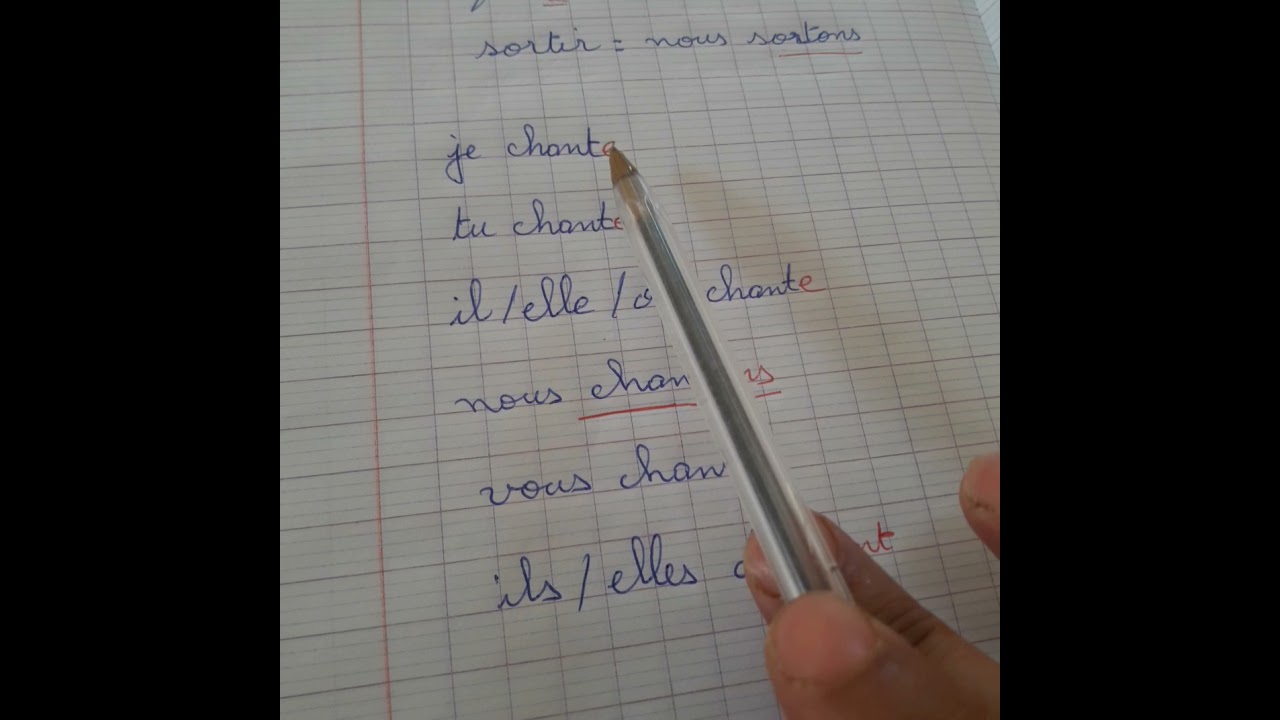 sortir = nous sortons
je chante
tu chante
il/elle/o chante
nous chan ns
vous chan
ils/elles c nt